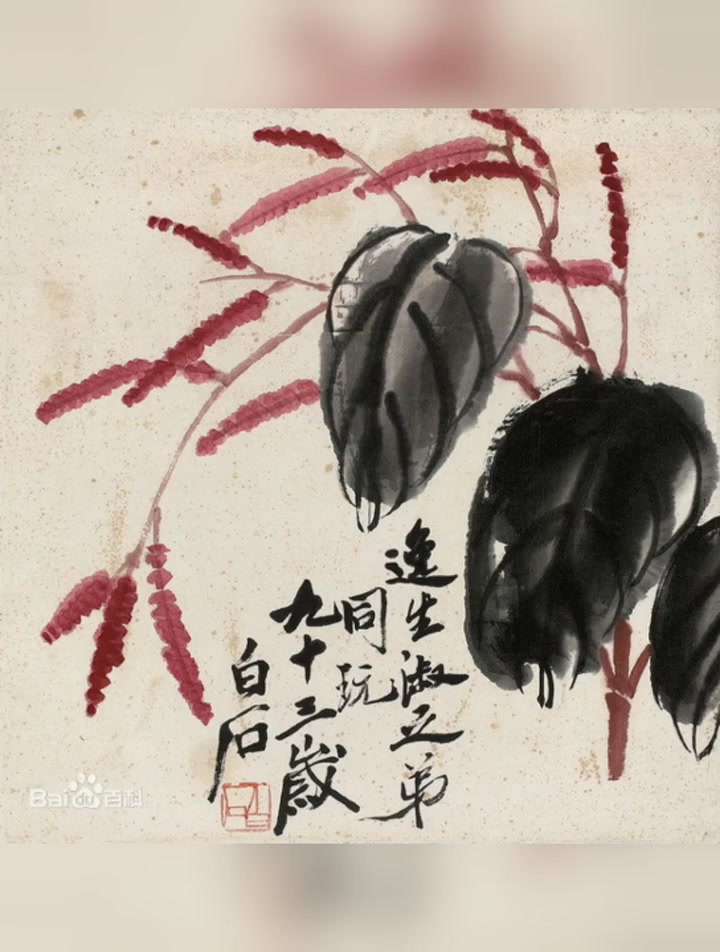 逸生淑弟
同玩
九十三歲
白石
Bai百科